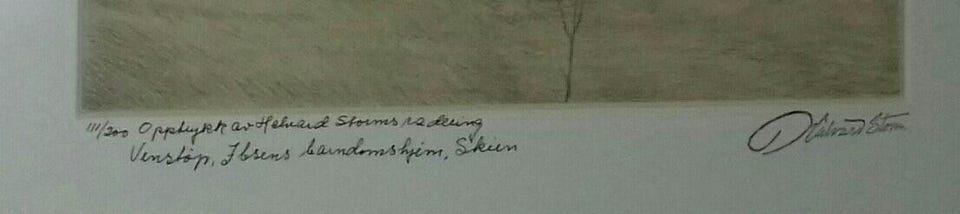 111/200 Opptrykk av Halvard Storms radering
Venstøp, Ibsens barndomshjem, Skien
Halvard Storm